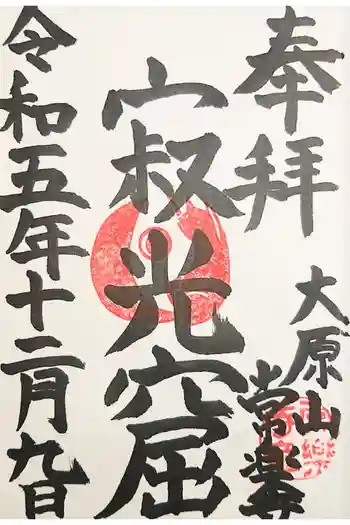 奉拝
大原山
常楽寺
寂光窟
令和五年十二月九日